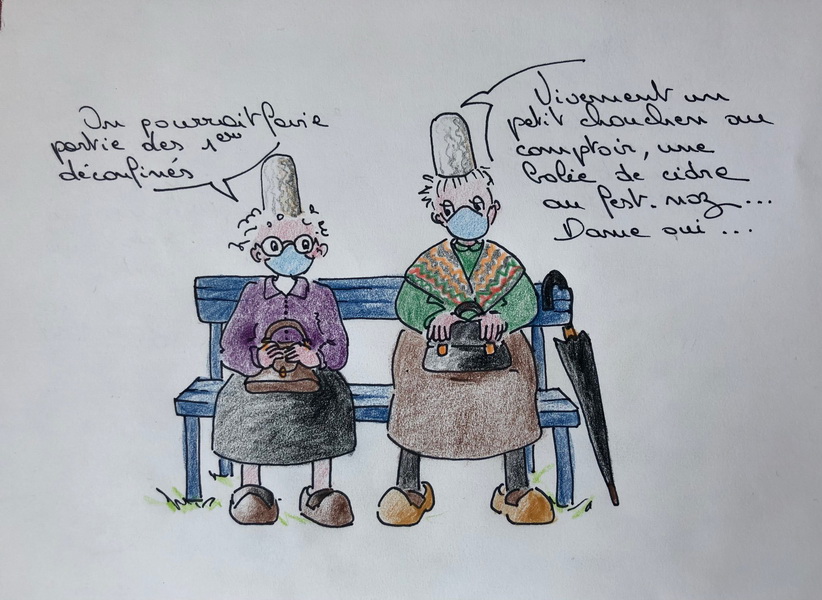 On pourrait faire
partie des 1ers
déconfinés
Vivement un
petit chouchen au
comptoir, une
bolée de cidre
au fest-noz...
Dame oui...